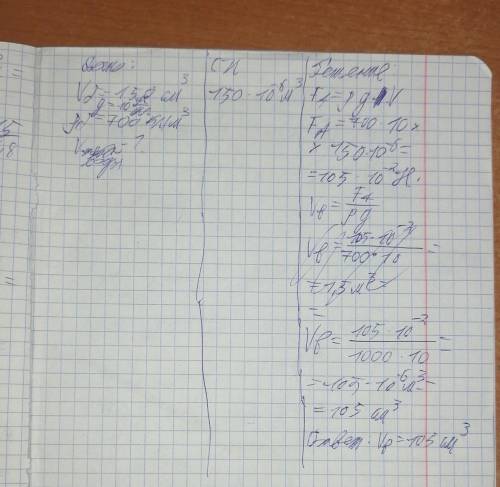 Дано:
V = 150 см³
g = 10
ρ = 700 кг/м³
V воды ?
СИ
150 · 10⁻⁶ м³
Решение
FA = ρ g V
FA = 700 · 10 ×
× 150 · 10⁻⁶ =
= 105 · 10⁻² Н.
Vв = FA / ρ g
Vв = 105 · 10⁻² / 700 · 10 =
= 1,5 м³
=
Vв = 105 · 10⁻² / 1000 · 10 =
= 105 · 10⁻⁶ м³ =
= 105 см³
Ответ: Vв = 105 см³